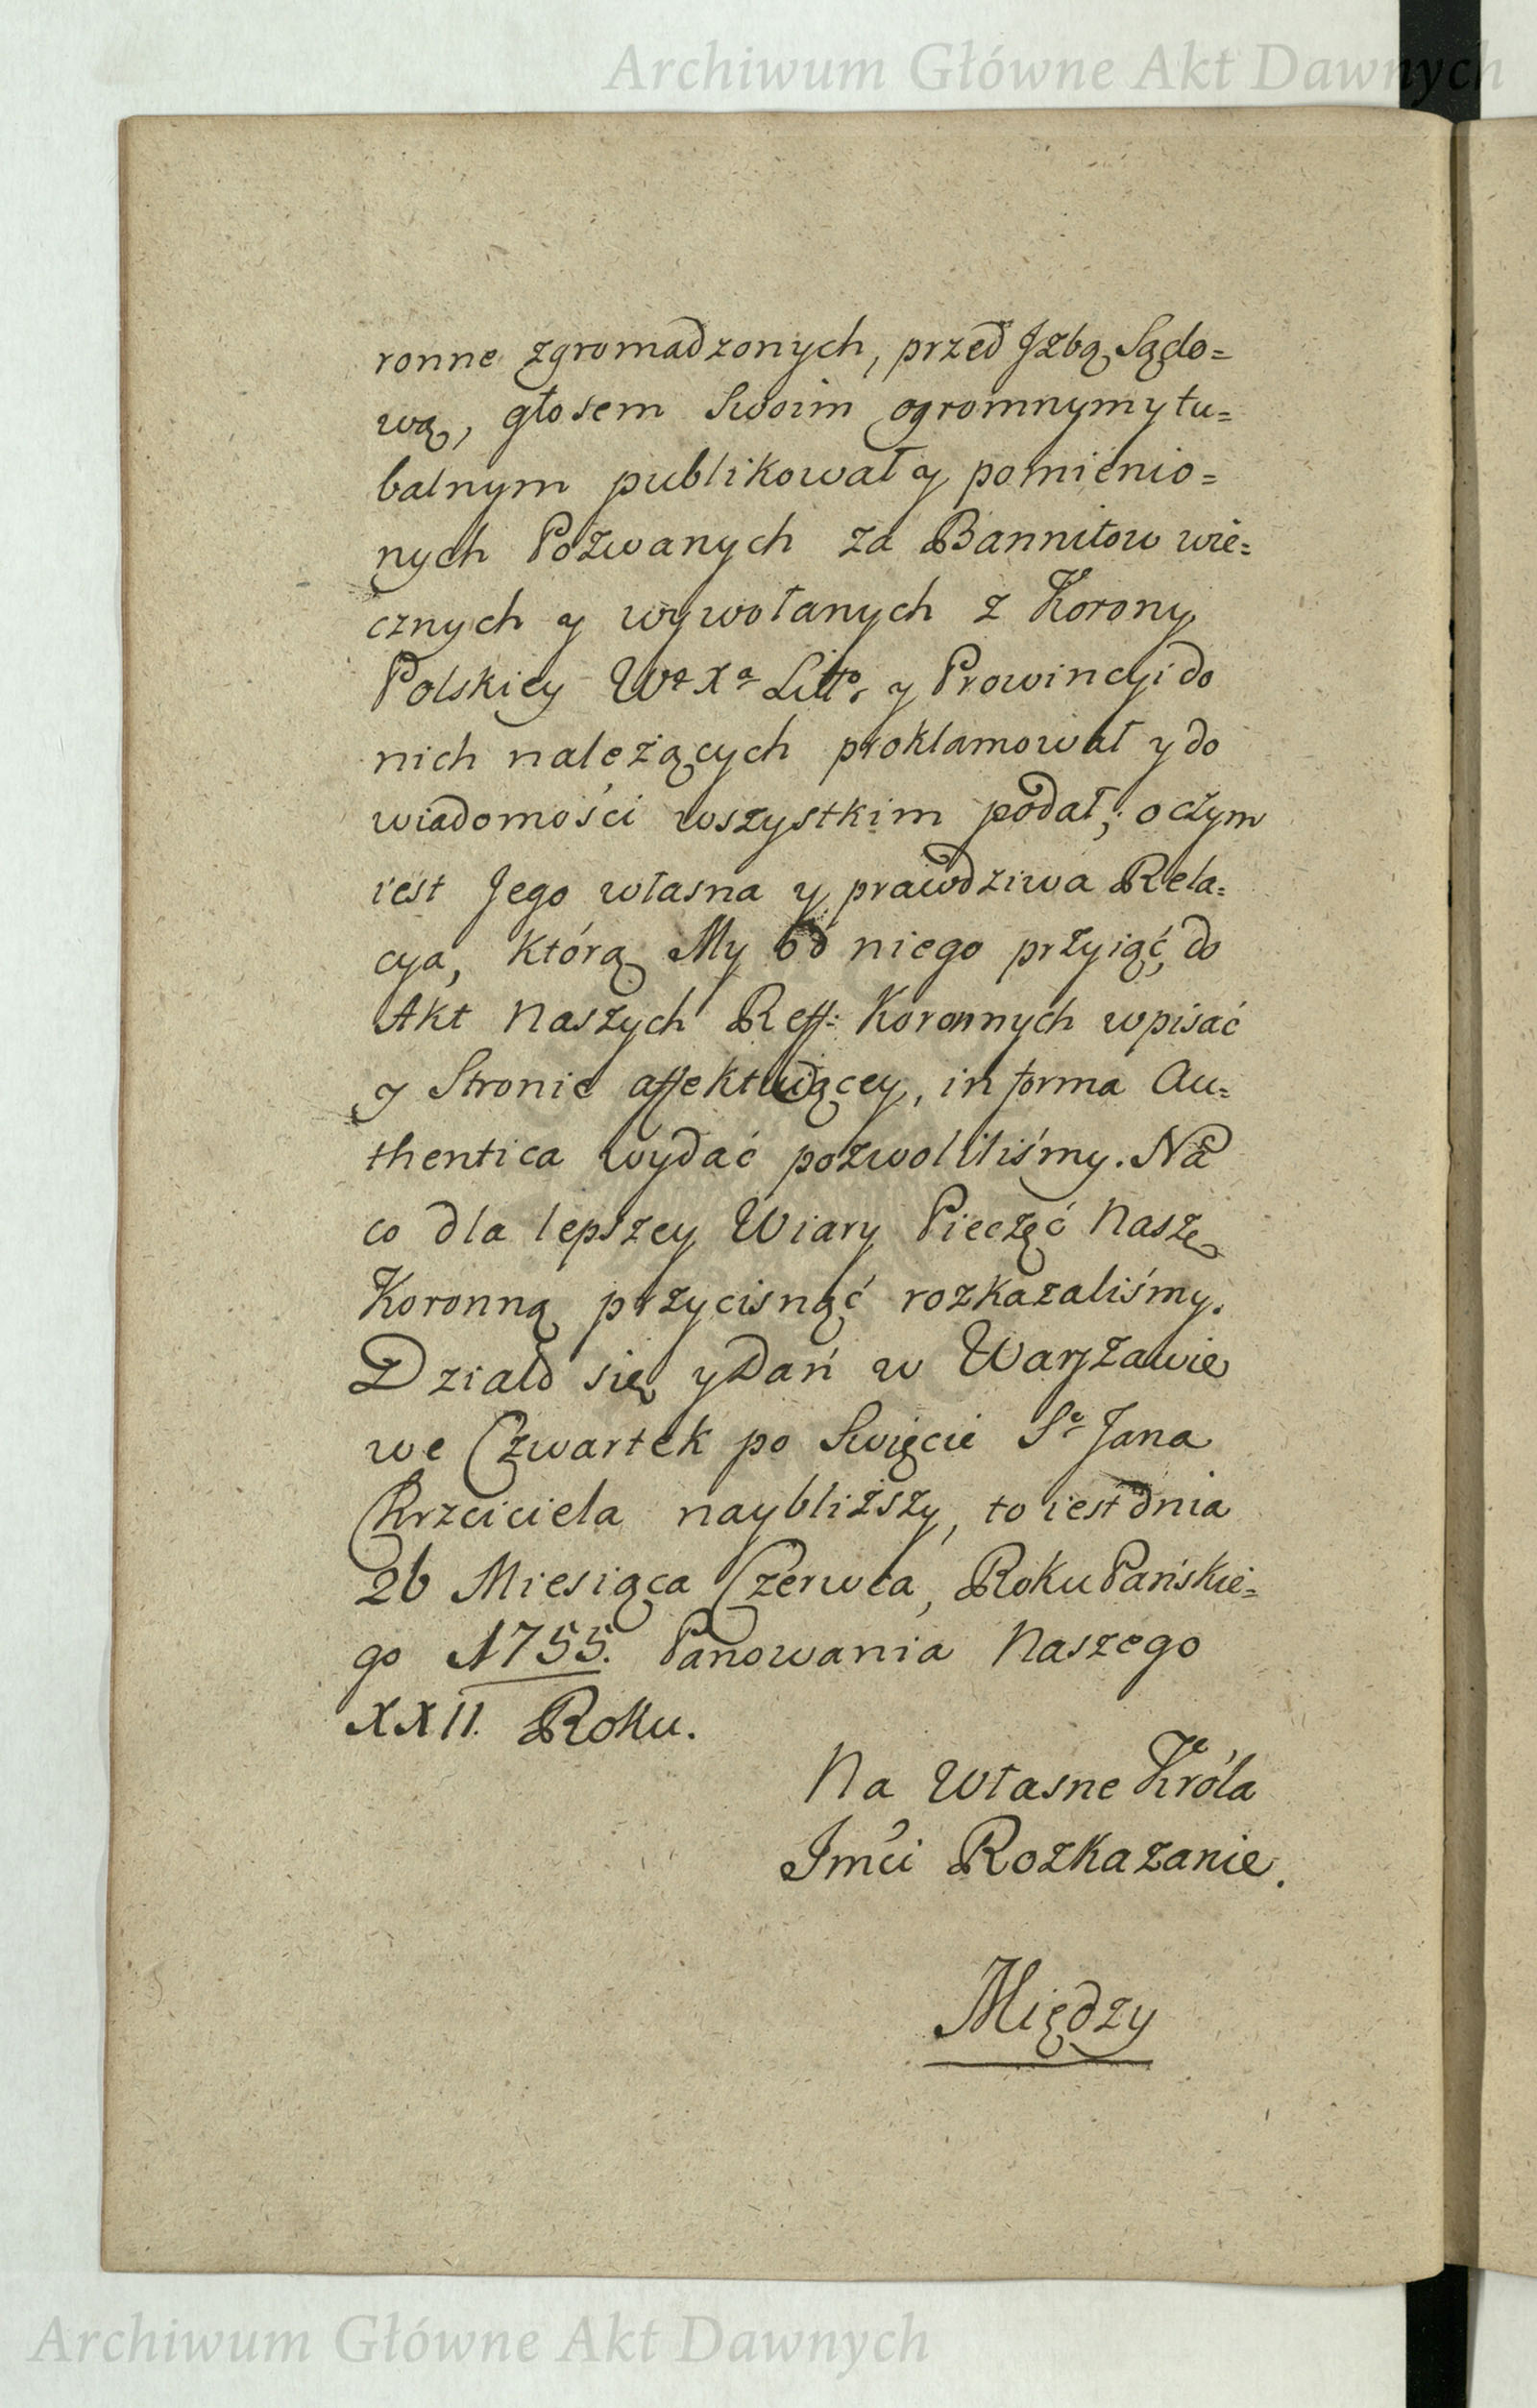 Archiwum Główne Akt Dawnych
ronne zgromadzonych, przed Jzbą Sądo=
wą, głosem Swoim ogromnym y tu=
balnym publikował y pomienio=
nych Pozwanych za Bannitow wie=
cznych y wywołanych z Korony
Polskiey Wo Xa Litto y Prowincyi do
nich należących proklamował y do
wiadomości wszystkim podał; o czym
iest Jego własna y prawdziwa Rela=
cya, którą My od niego przyiąć, do
Akt Naszych Reff: Koronnych wpisać
y Stronie affektuiącey, in forma Au=
thentica wydać pozwoliliśmy. Na
co dla lepszey Wiary Pieczęć Naszę
Koronną przycisnąć rozkazaliśmy.
Działo się y Dań w Warszawie
we Czwartek po Swięcie So Jana
Krzciciela naybliższy, to iest dnia
26 Miesiąca Czerwca, Roku Pańskie=
go 1755. Panowania Naszego
XXII. Roku.
Na Własne Króla
Jmći Rozkazanie.
Między
Archiwum Główne Akt Dawnych